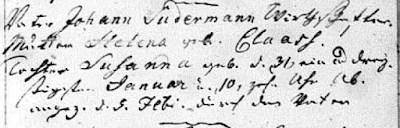 Vater Johann Sudermann Wirthschafter.
Mutter Helena geb. Claass.
Tochter Susanna geb. d. 31, ein u dreis-
sigsten Januar u. 10, zehn Uhr Ab.
angez. d. 5. Febr. durch den Vater